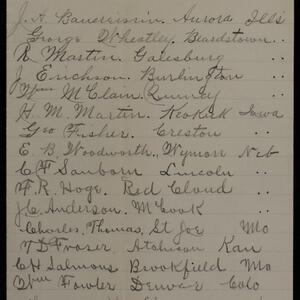 J. A. Aurora Ills
George Wheatley. Beardstown ..
R Martin. Galesburg ..
J Erichson. Burlington ..
Wm McClain. Quincy ..
H. M. Martin. Keokuk Iowa
Geo Fisher. Creston ..
E B. Woodworth., Wymon Neb
C F Sanborn Lincoln ..
F. R. Hoge. Red Cloud ..
J. C. Anderson. McCook ..
Charles, Thomas, St Joe Mo
T D Fraser Atchison Kan
C H Salmons Brookfield Mo
Wm Fowler Denver Colo